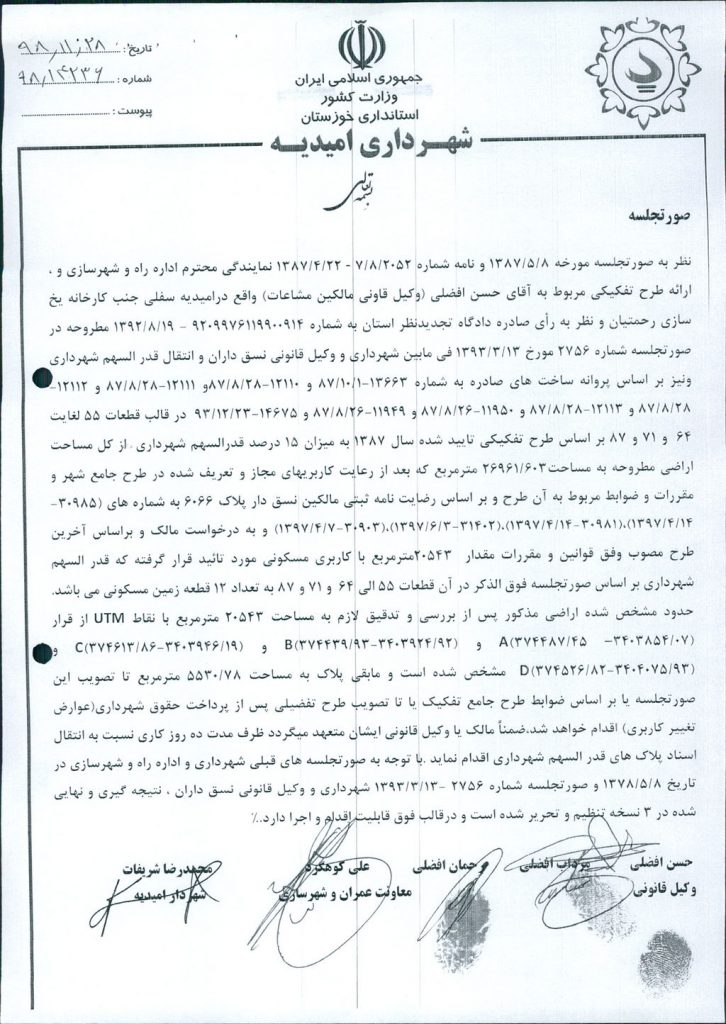 تاریخ: ۹۸٫۱۱٫۲۸
شماره: ۹۸٫۱۴۲۳۶
پیوست:
جمهوری اسلامی ایران
وزارت کشور
استانداری خوزستان
شهرداری امیدیه
بسمه تعالی
صورتجلسه
نظر به صورتجلسه مورخه ۱۳۸۷/۵/۸ و نامه شماره ۷/۸/۲۰۵۲ - ۱۳۸۷/۴/۲۲ نمایندگی محترم اداره راه و شهرسازی و ،
ارائه طرح تفکیکی مربوط به آقای حسن افضلی (وکیل قاونی مالکین مشاعات) واقع درامیدیه سفلی جنب کارخانه یخ
سازی رحمتیان و نظر به رأی صادره دادگاه تجدیدنظر استان به شماره ۹۲۰۹۹۷۶۱۱۹۹۰۰۹۱۴ - ۱۳۹۲/۸/۱۹ مطروحه در
صورتجلسه شماره ۲۷۵۶ مورخ ۱۳۹۳/۳/۱۳ فی مابین شهرداری و وکیل قانونی نسق داران و انتقال قدر السهم شهرداری
ونیز بر اساس پروانه ساخت های صادره به شماره ۱۳۶۶۳-۸۷/۱۰/۱ و ۱۲۱۱۰-۸۷/۸/۲۸و ۱۲۱۱۱-۸۷/۸/۲۸ و ۱۲۱۱۲-
۸۷/۸/۲۸ و ۱۲۱۱۳-۸۷/۸/۲۸ و ۱۱۹۵۰-۸۷/۸/۲۶ و ۱۱۹۴۹-۸۷/۸/۲۶ و ۱۴۶۷۵-۹۳/۱۲/۲۳ در قالب قطعات ۵۵ لغایت
۶۴ و ۷۱ و ۸۷ بر اساس طرح تفکیکی تایید شده سال ۱۳۸۷ به میزان ۱۵ درصد قدرالسهم شهرداری . از کل مساحت
اراضی مطروحه به مساحت۲۶۹۶۱/۶۰۳ مترمربع که بعد از رعایت کاربریهای مجاز و تعریف شده در طرح جامع شهر و
مقررات و ضوابط مربوط به آن طرح و بر اساس رضایت نامه ثبتی مالکین نسق دار پلاک ۶۰۶۶ به شماره های (۳۰۹۸۵-
۱۳۹۷/۴/۱۴)،(۳۰۹۸۱-۱۳۹۷/۴/۱۴)،(۳۱۴۰۲-۱۳۹۷/۶/۳)،(۳۰۹۰۳-۱۳۹۷/۴/۷) و به درخواست مالک و براساس آخرین
طرح مصوب وفق قوانین و مقررات مقدار ۲۰۵۴۳مترمربع با کاربری مسکونی مورد تائید قرار گرفته که قدر السهم
شهرداری بر اساس صورتجلسه فوق الذکر در آن قطعات ۵۵ الی ۶۴ و ۷۱ و ۸۷ به تعداد ۱۲ قطعه زمین مسکونی می باشد.
حدود مشخص شده اراضی مذکور پس از بررسی و تدقیق لازم به مساحت ۲۰۵۴۳ مترمربع با نقاط UTM از قرار
A(۳۷۴۴۸۷/۴۵ -۳۴۰۳۸۵۴/۰۷) و B(۳۷۴۴۳۹/۹۳-۳۴۰۳۹۲۴/۹۲) و C(۳۷۴۶۱۳/۸۶-۳۴۰۳۹۴۶/۱۹) و
D(۳۷۴۵۲۶/۸۲-۳۴۰۴۰۷۵/۹۳) مشخص شده است و مابقی پلاک به مساحت ۵۵۳۰/۷۸ مترمربع تا تصویب این
صورتجلسه یا بر اساس ضوابط طرح جامع تفکیک یا تا تصویب طرح تفضیلی پس از پرداخت حقوق شهرداری(عوارض
تغییر کاربری) اقدام خواهد شد،ضمناً مالک یا وکیل قانونی ایشان متعهد میگردد ظرف مدت ده روز کاری نسبت به انتقال
اسناد پلاک های قدر السهم شهرداری اقدام نماید .با توجه به صورتجلسه های قبلی شهرداری و اداره راه و شهرسازی در
تاریخ ۱۳۷۸/۵/۸ و صورتجلسه شماره ۲۷۵۶ -۱۳۹۳/۳/۱۳ شهرداری و وکیل قانونی نسق داران ، نتیجه گیری و نهایی
شده در ۳ نسخه تنظیم و تحریر شده است و درقالب فوق قابلیت اقدام و اجرا دارد..٪
حسن افضلی مهراب افضلی رحمان افضلی علی کوهگرد محمدرضا شریفات
وکیل قانونی معاونت عمران و شهرسازی شهردار امیدیه